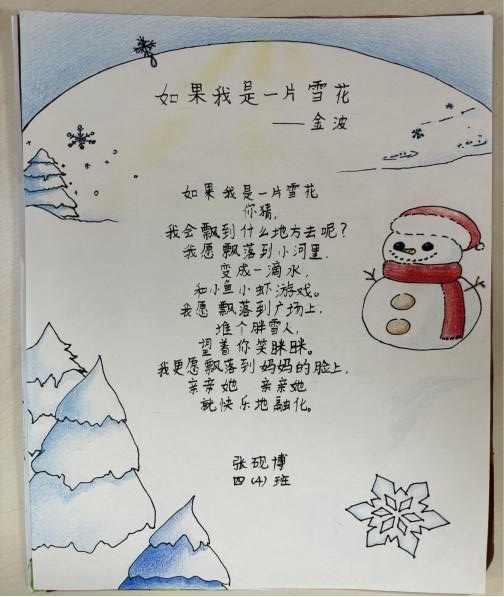 如果我是一片雪花
——金波
如果我是一片雪花
你猜,
我会飘到什么地方去呢?
我愿飘落到小河里,
变成一滴水,
和小鱼小虾游戏。
我愿飘落到广场上,
堆个胖雪人,
望着你笑眯眯。
我更愿飘落到妈妈的脸上,
亲亲她 亲亲她
就快乐地融化。
张砚博
四(4)班